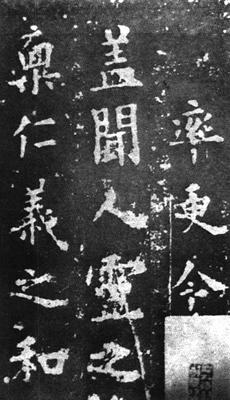 率更令
盖聞人靈之
稟仁義之和